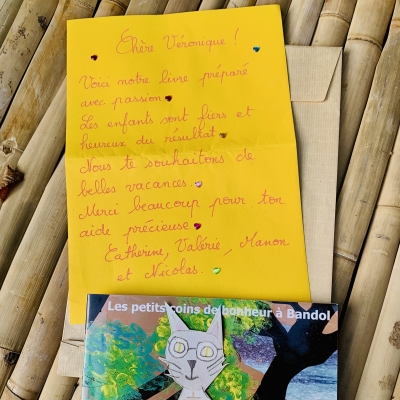 Chère Véronique !
Voici notre livre préparé
avec passion
Les enfants sont fiers et
heureux du résultat
Nous te souhaitons de
belles vacances.
Merci beaucoup pour ton
aide précieuse
Catherine, Valérie, Manon
et Nicolas.
Les petits coins de bonheur à Bandol